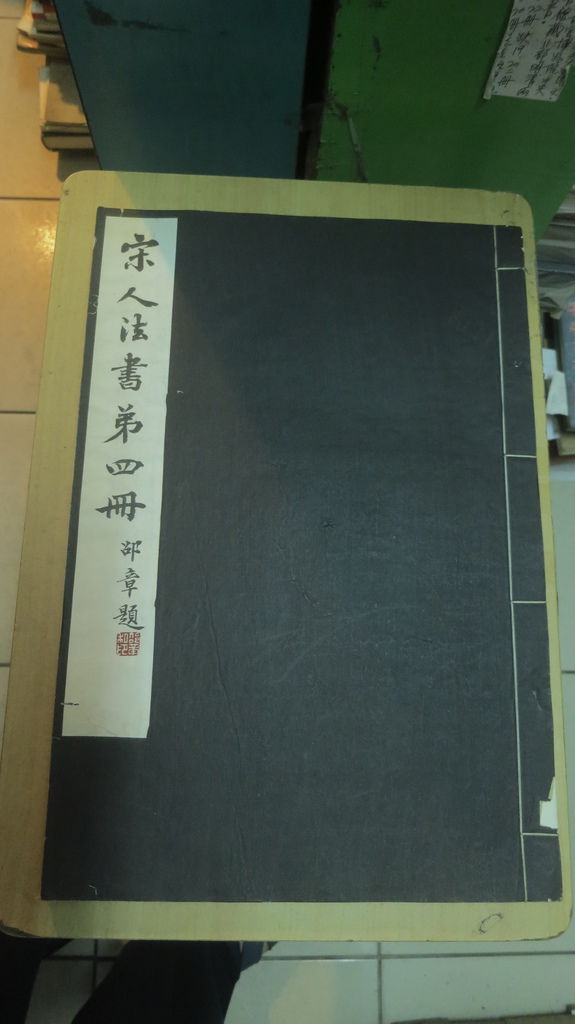 宋人法書弟四冊
邵章題